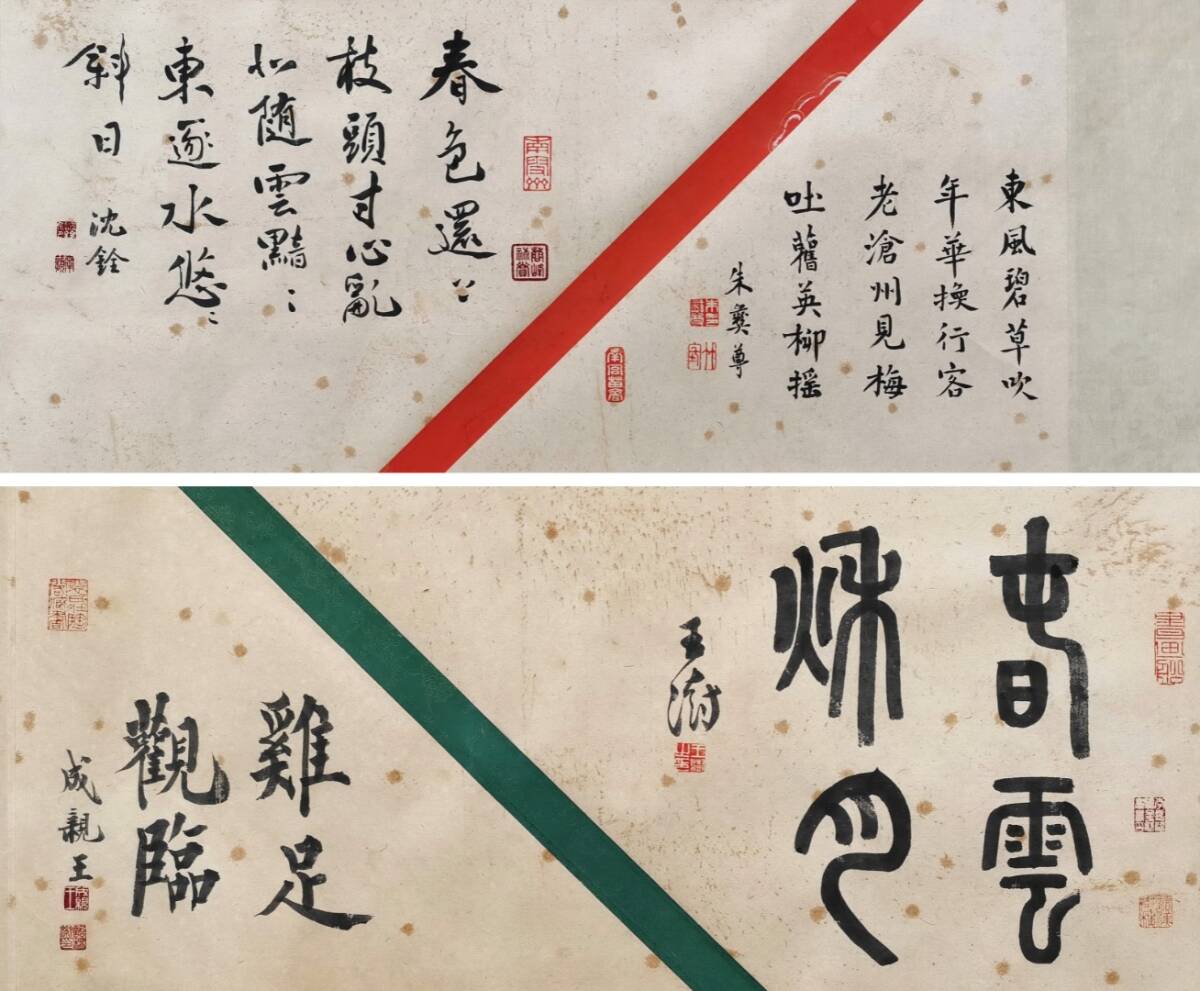 東風碧草吹
年華換行客
老滄州見梅
吐舊英柳摇
朱彝尊
春色還上
枝頭寸心亂
北随雲黯〻
東逐水悠〻
斜日
沈銓
春雲
秌月
王澍
雞足
觀臨
成親王